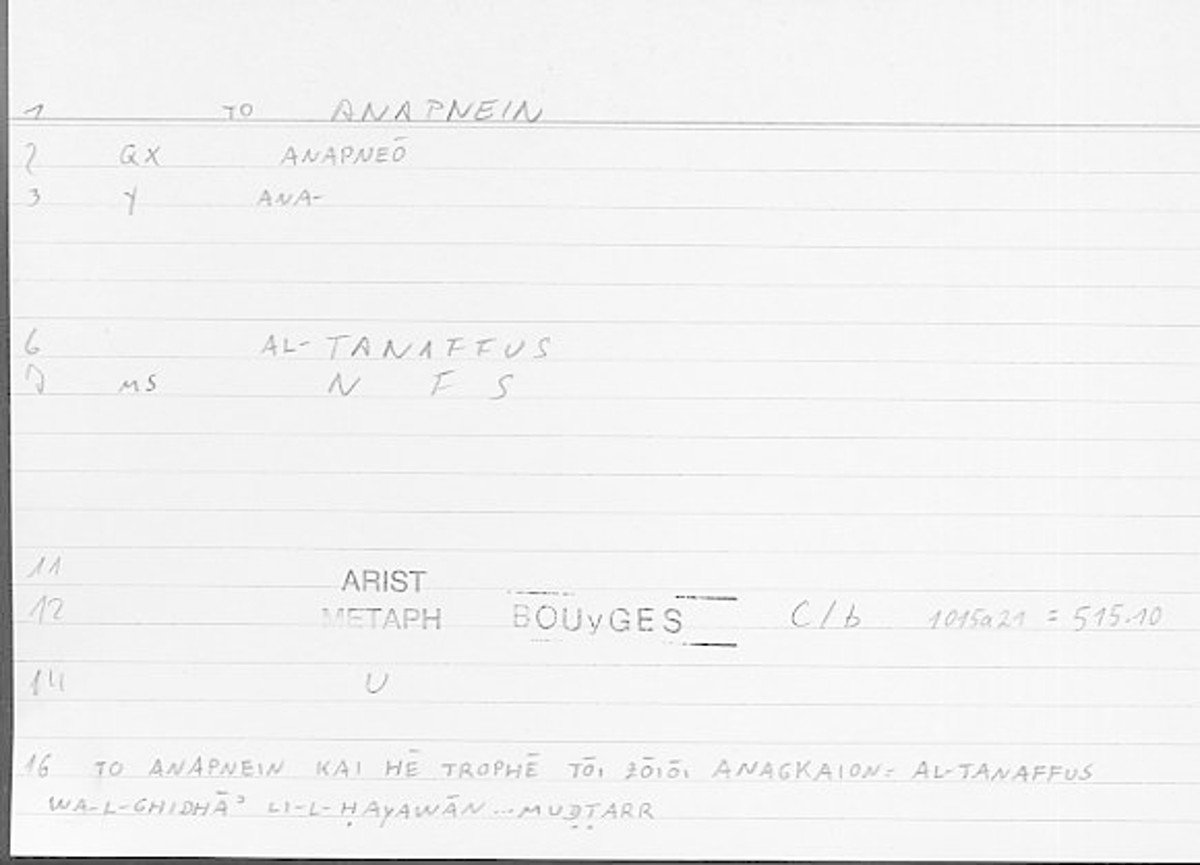 1 TO ANAPNEIN
2 GX ANAPNEŌ
3 Y ANA-
6 AL-TANAFFUS
7 MS N F S
11 ARIST
12 METAPH BOUyGES C/b 1015a21 = 515.10
14 U
16 TO ANAPNEIN KAI HĒ TROPHĒ TŌI ZŌIŌI ANAGKAION: AL-TANAFFUS
WA-L-GHIDHĀʾ LI-L-ḤAYAWĀN ... MUḌṬARR